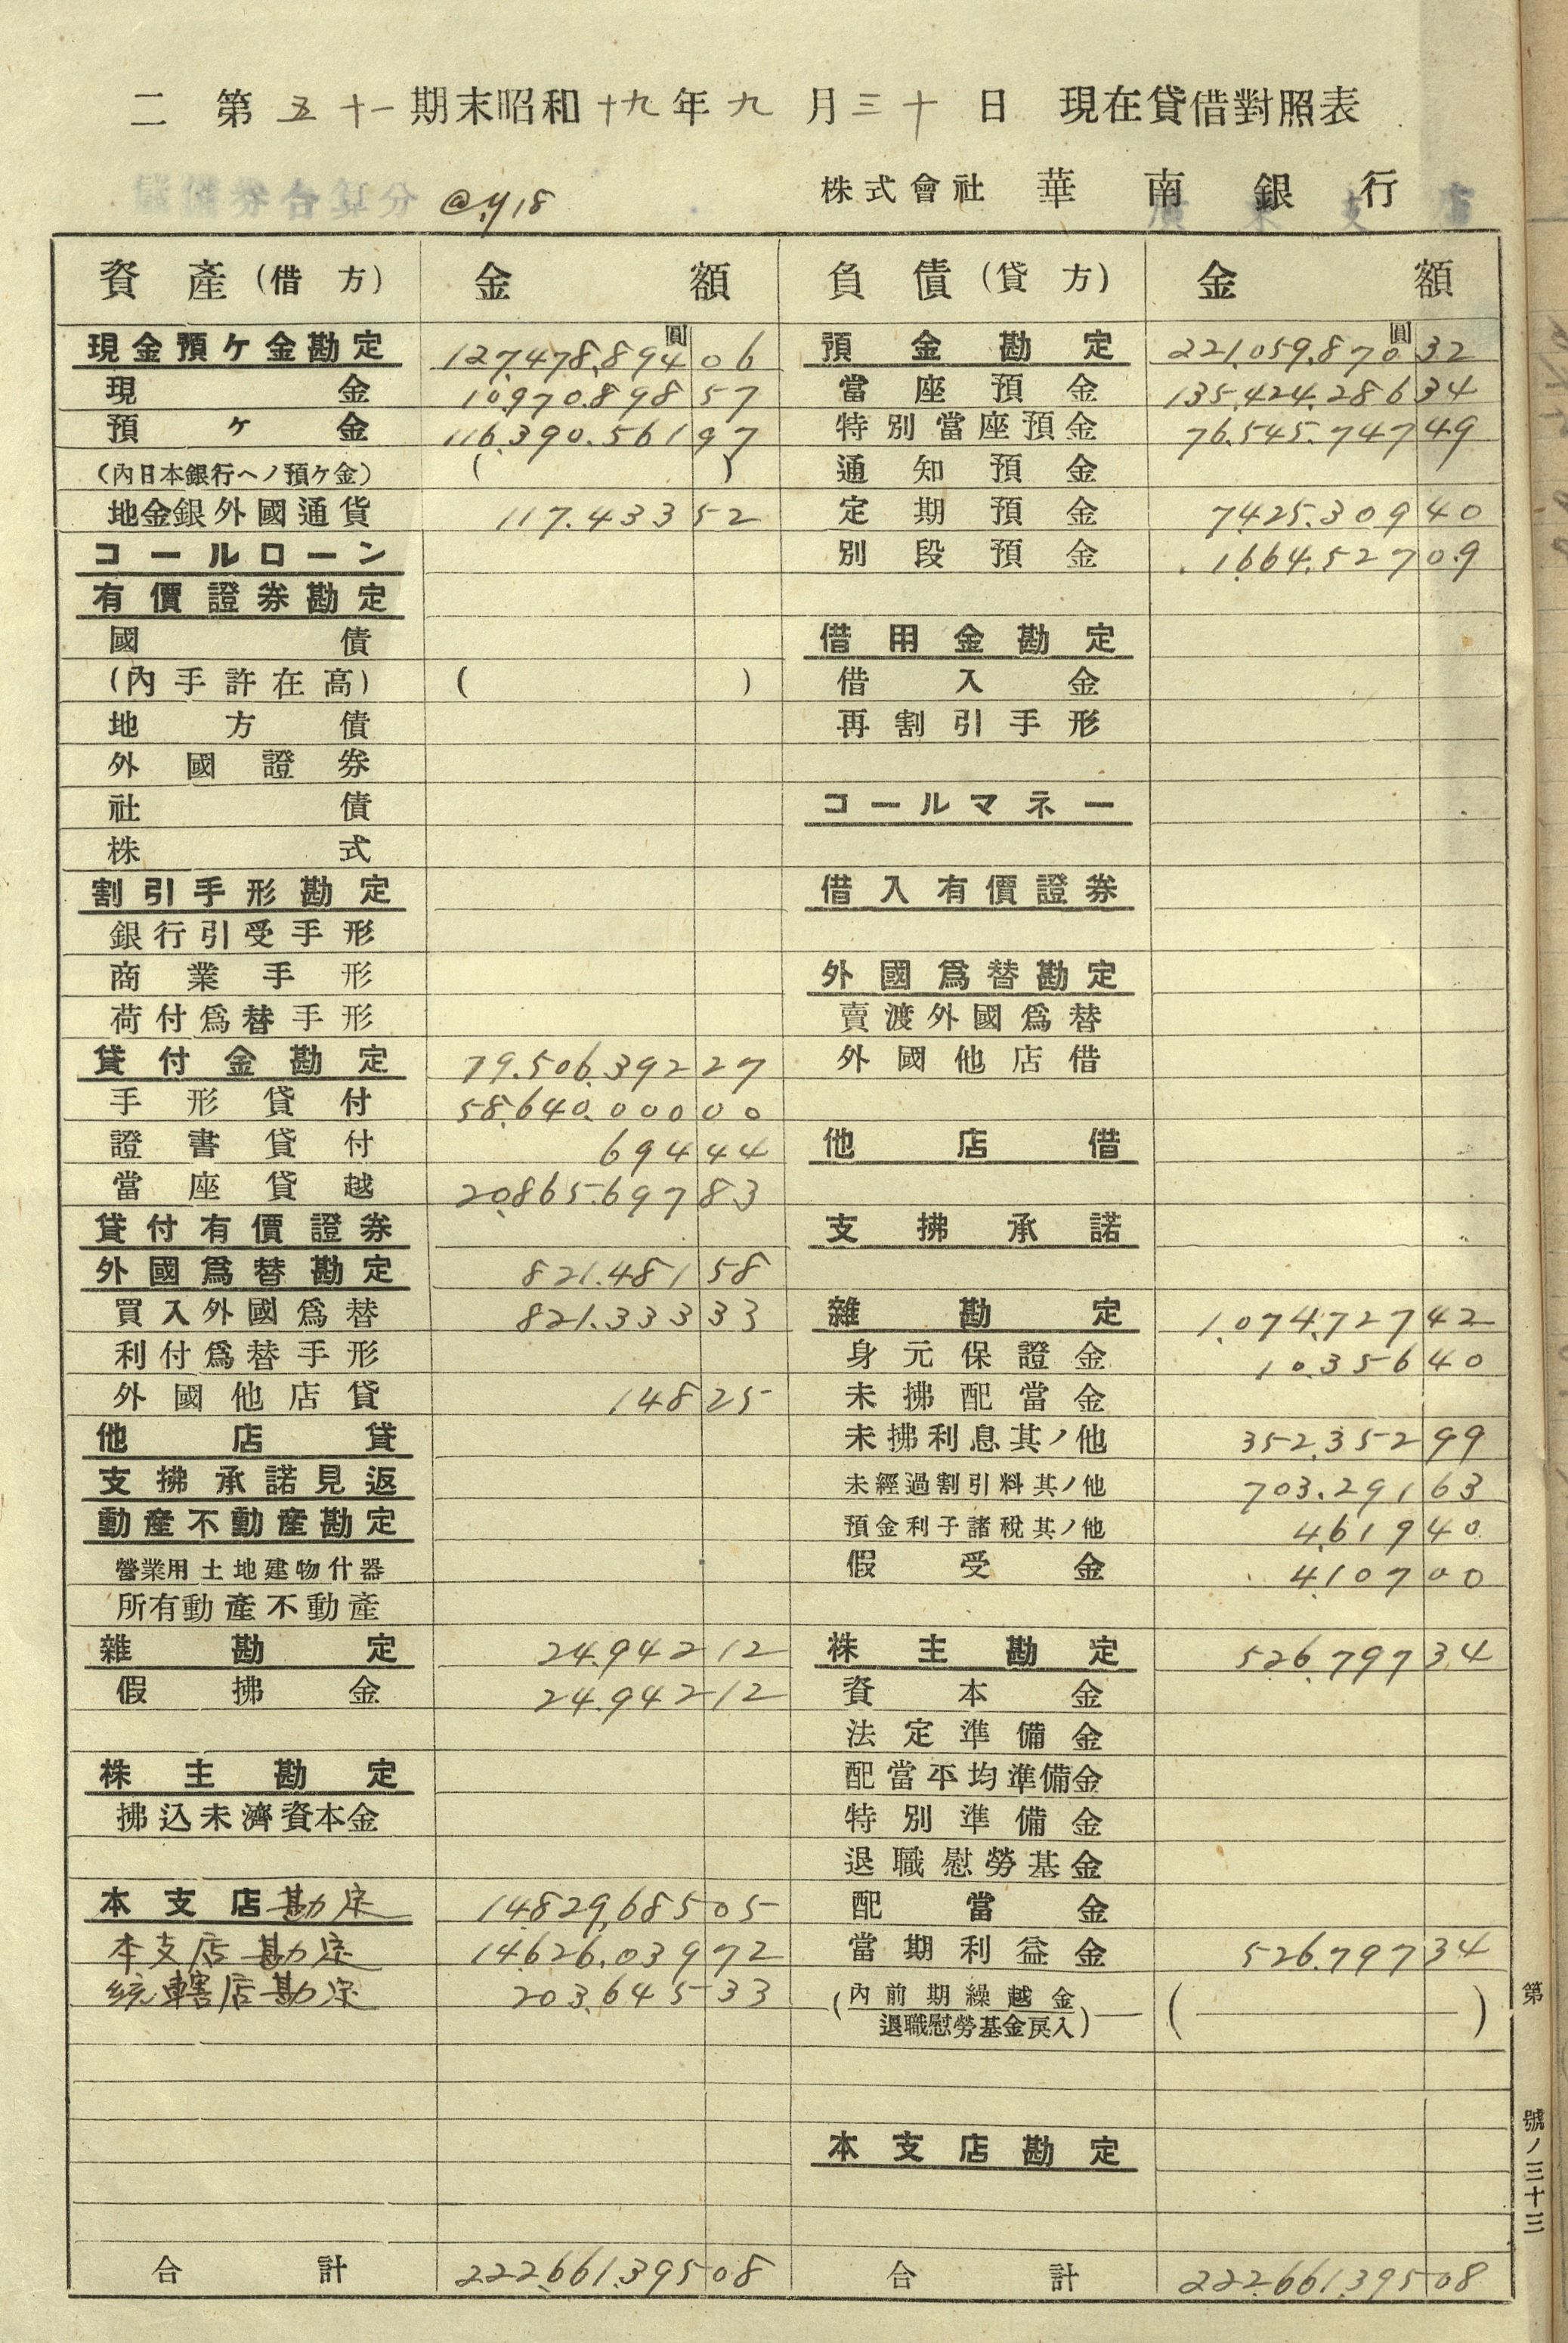 二 第五十一期末昭和十九年九月三十日 現在貸借對照表
儲備券合算分 @¥18 株式會社 華南銀行
廣東支店
資產(借方) 金額 負債(貸方) 金額
圓 圓
現金預ケ金勘定 127,478,894 06 預金勘定 221,059,870 32
現金 10,970,898 57 當座預金 135,424,286 34
預ケ金 116,390,561 97 特別當座預金 76,545,747 49
(內日本銀行ヘノ預ケ金) ( ) 通知預金
地金銀外國通貨 117,433 52 定期預金 7,425,309 40
コールローン 別段預金 1,664,527 09
有價證券勘定
國債 借用金勘定
(內手許在高) ( ) 借入金
地方債 再割引手形
外國證券
社債 コールマネー
株式
割引手形勘定 借入有價證券
銀行引受手形
商業手形 外國爲替勘定
荷付爲替手形 賣渡外國爲替
貸付金勘定 79,506,392 27 外國他店借
手形貸付 58,640,000 00
證書貸付 694 44 他店借
當座貸越 20,865,697 83
貸付有價證券 支拂承諾
外國爲替勘定 821,481 58
買入外國爲替 821,333 33 雜勘定 1,074,727 42
利付爲替手形 身元保證金 10,356 40
外國他店貸 148 25 未拂配當金
他店貸 未拂利息其ノ他 352,352 99
支拂承諾見返 未經過割引料其ノ他 703,291 63
動產不動產勘定 預金利子諸稅其ノ他 4,619 40
營業用土地建物什器 假受金 4,107 00
所有動產不動產
雜勘定 24,942 12 株主勘定 526,797 34
假拂金 24,942 12 資本金
法定準備金
株主勘定 配當平均準備金
拂込未濟資本金 特別準備金
退職慰勞基金
本支店勘定 14,829,685 05 配當金
本支店勘定 14,626,039 72 當期利益金 526,797 34
統轄店勘定 203,645 33 (內前期繰越金 ( )
退職慰勞基金戾入)
本支店勘定
合計 222,661,395 08 合計 222,661,395 08
第 號ノ三十三